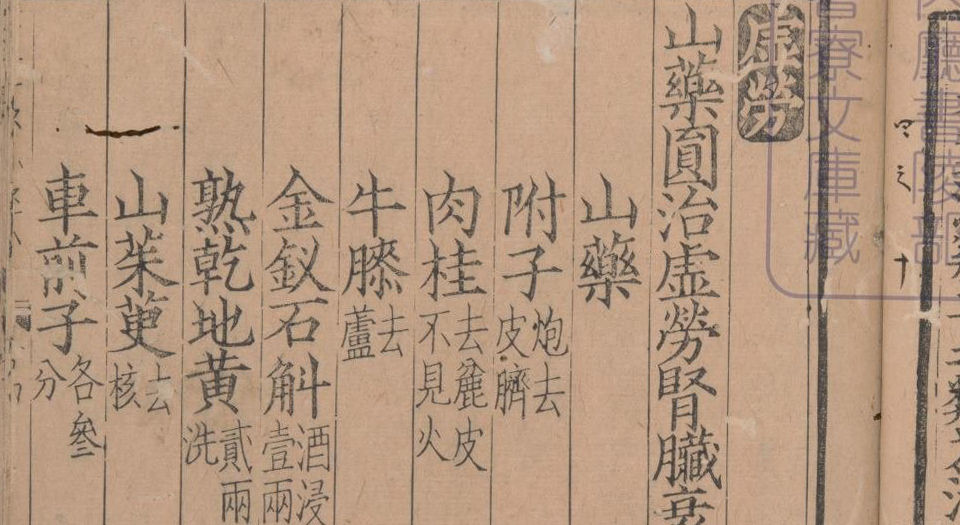 虛勞
山藥圓治虛勞腎臟衰
山藥
附子炮去皮臍
肉桂去麄皮不見火
牛膝去蘆
金釵石斛酒浸壹兩
熟乾地黃貳兩洗
山茱萸去核
車前子各叄分
寮文庫藏
廳書陵部